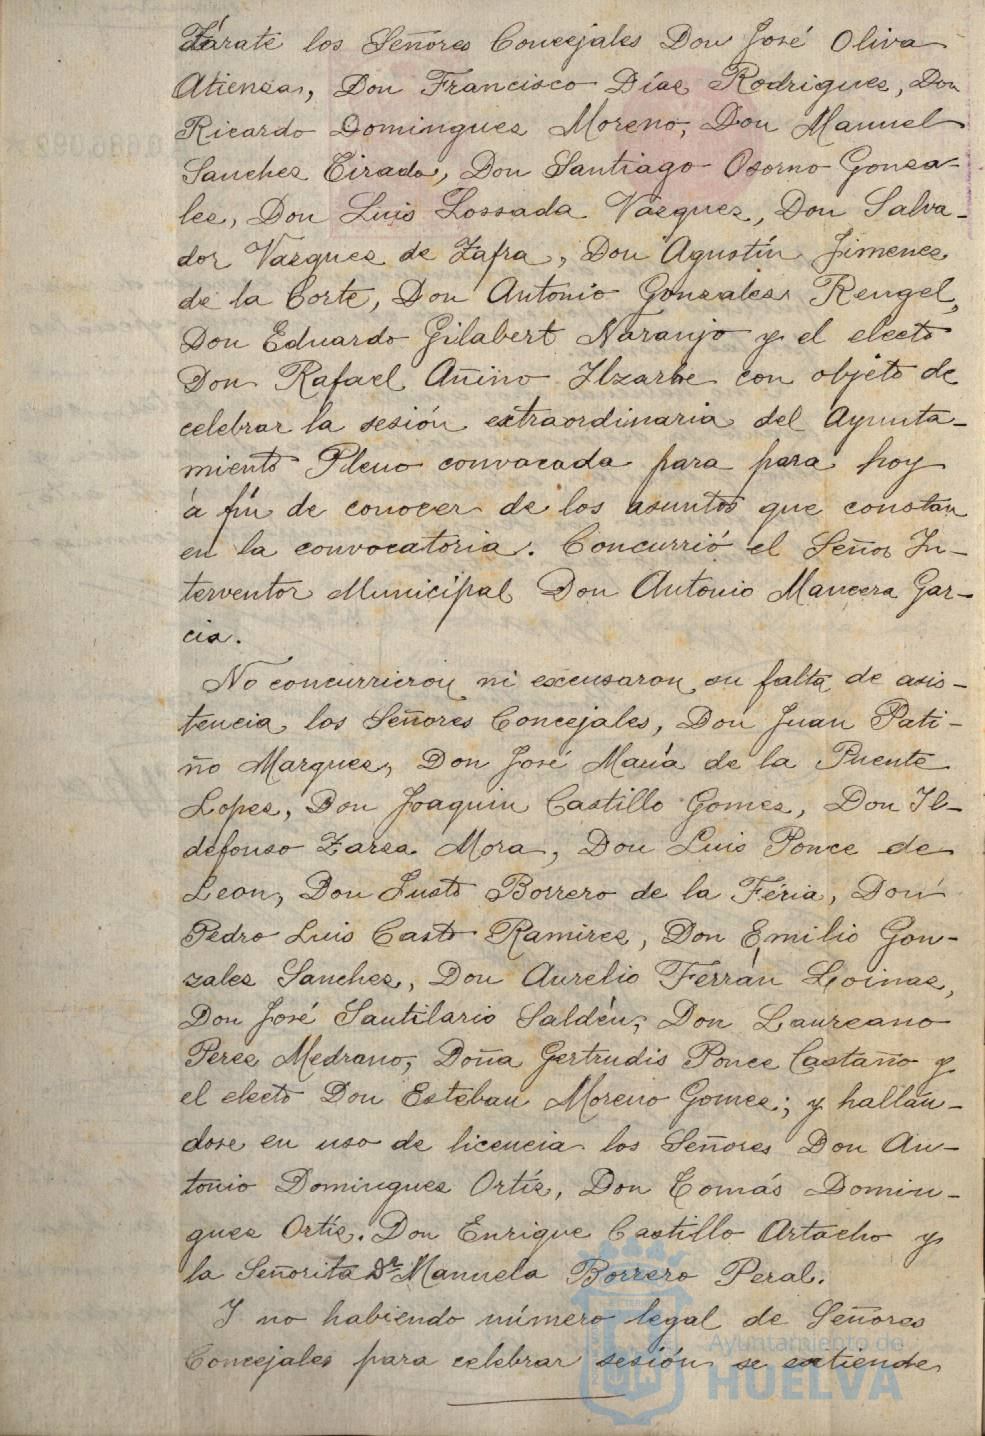 Zárate los Señores Concejales Don José Oliva
Atienza, Don Francisco Díaz Rodriguez, Don
Ricardo Dominguez Moreno, Don Manuel
Sanchez Tirado, Don Santiago Osorno Gonza-
lez, Don Luis Lossada Vazquez, Don Salva-
dor Vazquez de Zafra, Don Agustín Jimenez
de la Corte, Don Antonio Gonzalez Rengel,
Don Eduardo Gilabert Naranjo y el electo
Don Rafael Añino Ilzarbe con objeto de
celebrar la sesión extraordinaria del Ayunta-
miento Pleno convocada para para hoy
á fín de conocer de los asuntos que constan
en la convocatoria. Concurrió el Señor In-
terventor Municipal Don Antonio Mancera Gar-
cia.
No concurrieron ni excusaron su falta de asis-
tencia los Señores Concejales, Don Juan Pati-
ño Marquez, Don José María de la Puente
Lopez, Don Joaquin Castillo Gomez, Don Il-
defonso Zarza Mora, Don Luis Ponce de
Leon, Don Justo Borrero de la Féria, Don
Pedro Luis Casto Ramirez, Don Emilio Gon-
zalez Sanchez, Don Aurelio Ferrán Loinaz,
Don José Santilario Saldén, Don Laureano
Perez Medrano, Doña Gertrudis Ponce Castaño y
el electo Don Esteban Moreno Gomez; y hallán-
dose en uso de licencia los Señores Don An-
tonio Dominguez Ortíz, Don Tomás Domin-
guez Ortíz. Don Enrique Castillo Artacho y
la Señorita Dª Manuela Borrero Peral.
Y no habiendo número legal de Señores
Concejales para celebrar sesión se extiende
Ayuntamiento de
HUELVA